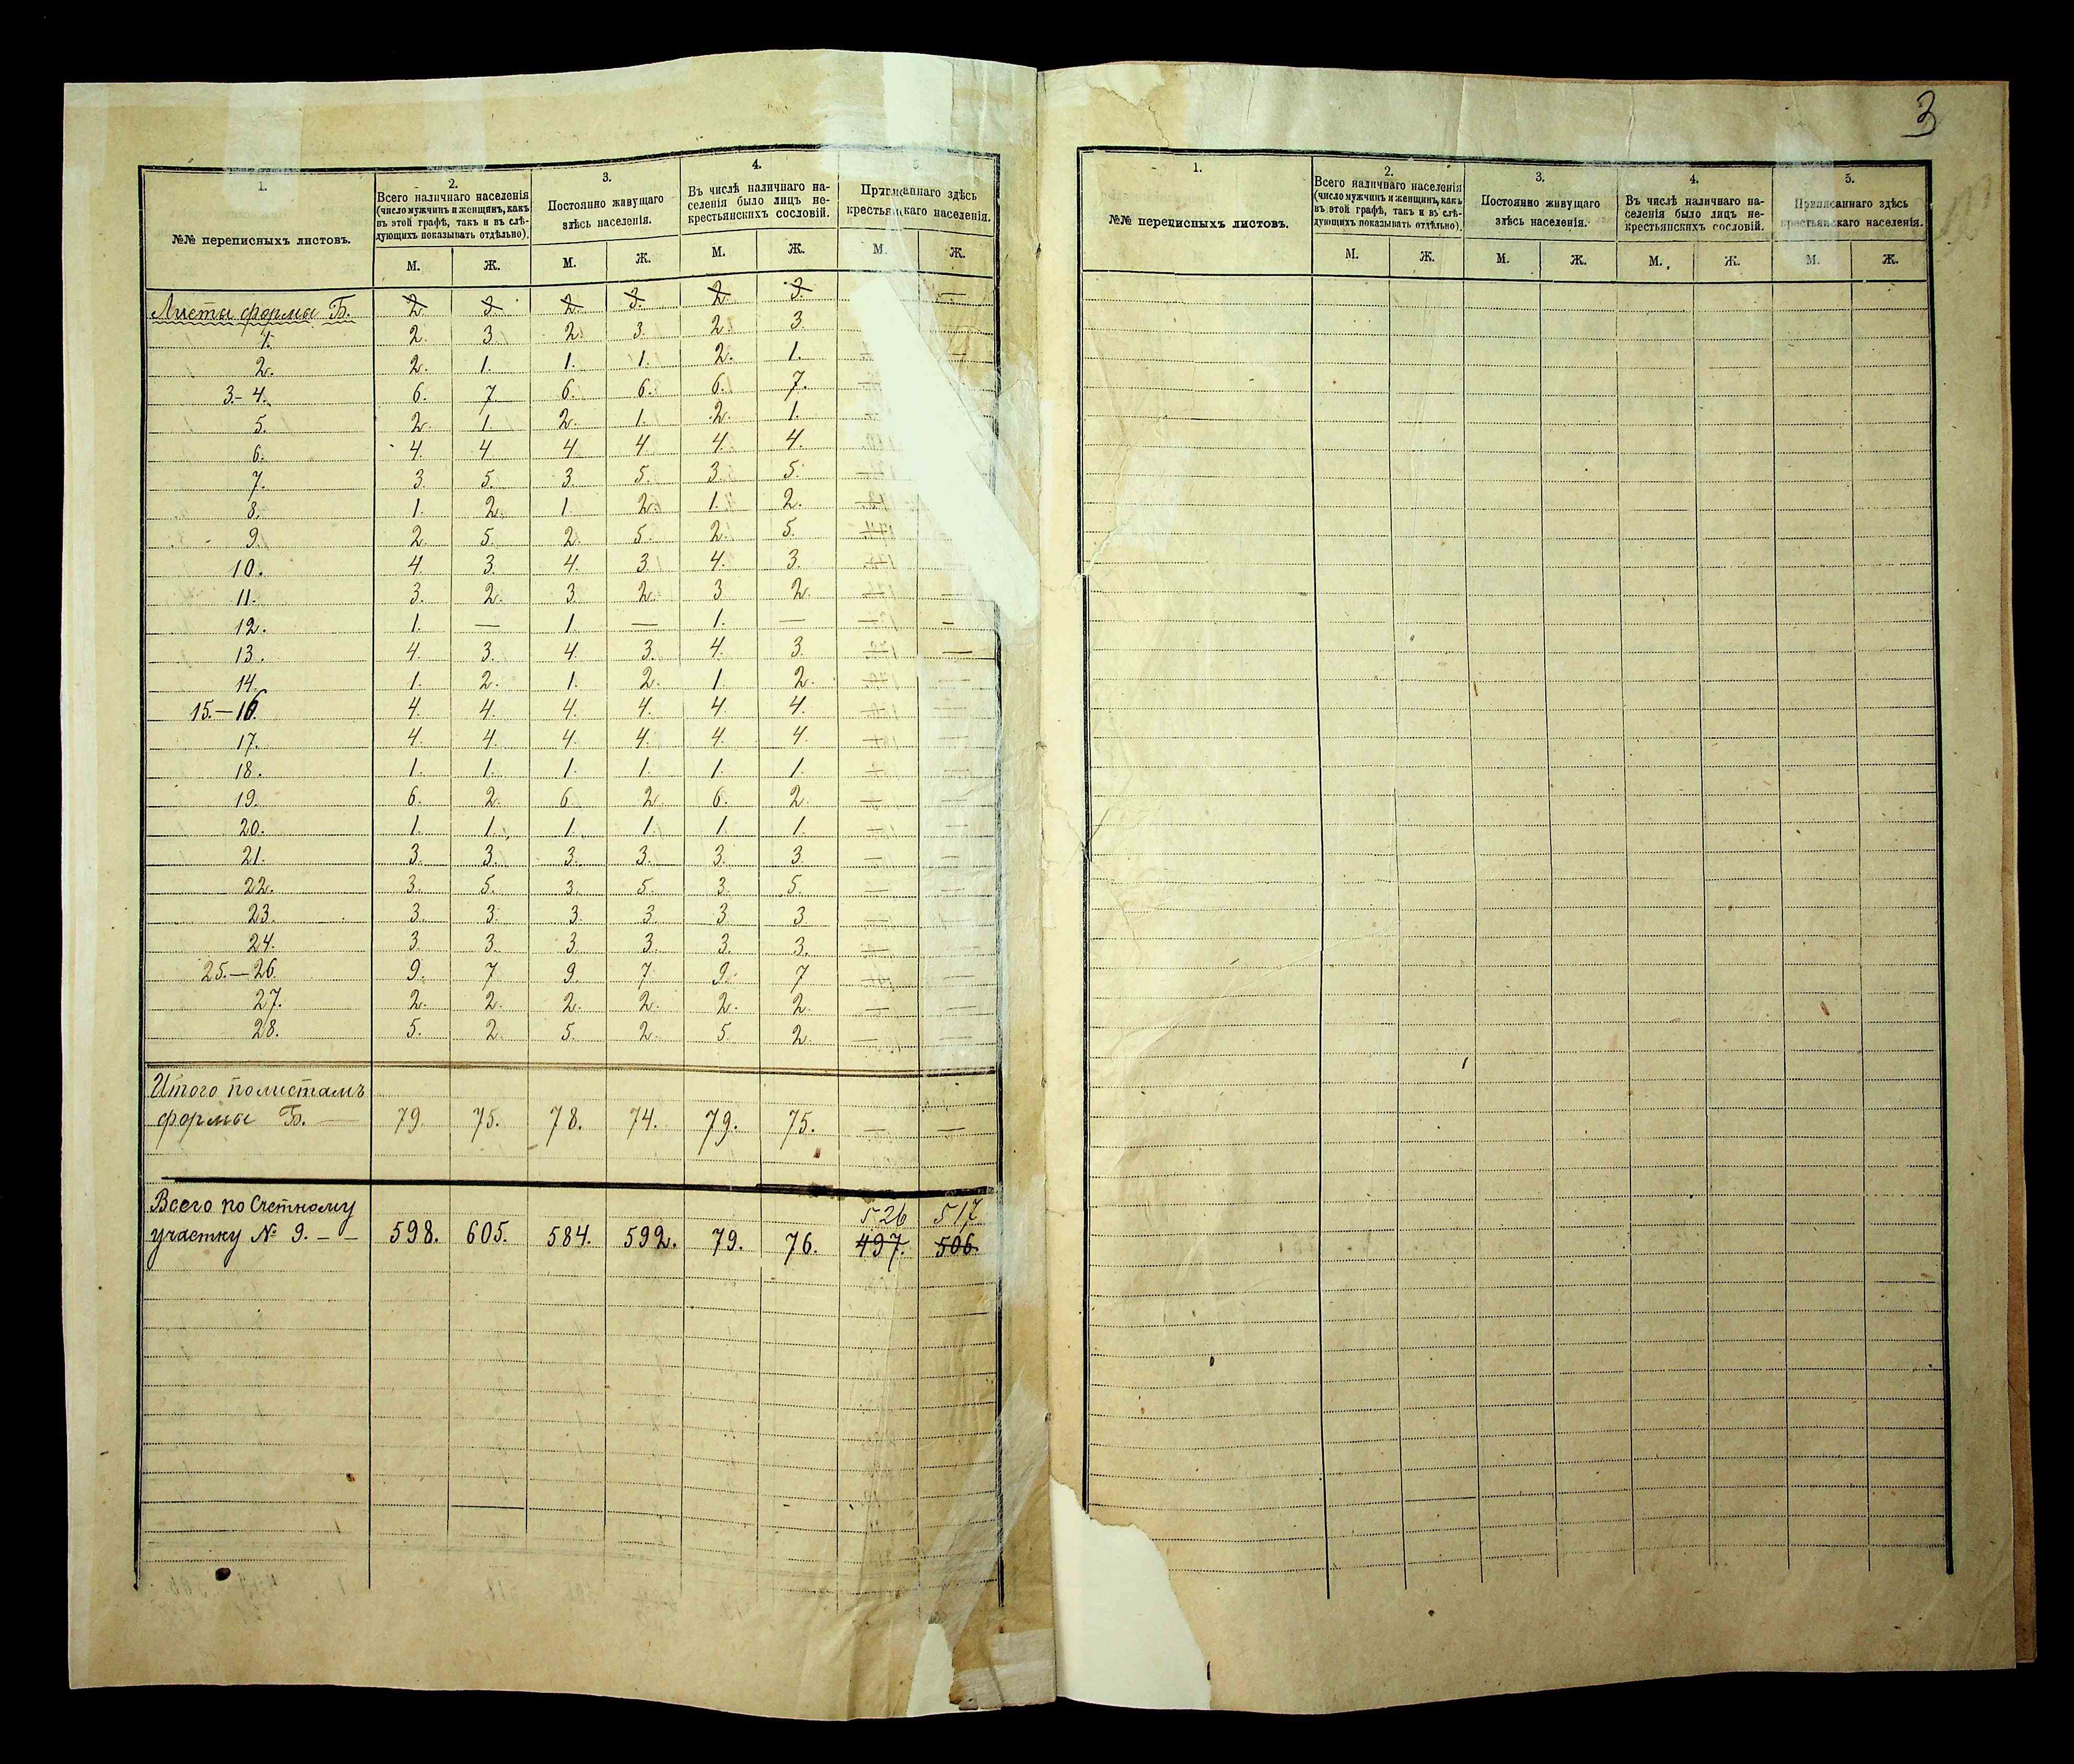 1. 2. 3. 4. 5
№№ переписныхъ листовъ.
Всего наличнаго населенія
(число мужчинъ и женщинъ, какъ
въ этой графѣ, такъ и въ слѣ-
дующихъ показывать отдѣльно).
Постоянно живущаго
здѣсь населенія.
Въ числѣ наличнаго на-
селенія было лицъ не-
крестьянскихъ сословій.
Приписаннаго здѣсь
крестьянскаго населенія.
М. Ж. М. Ж. М. Ж. М. Ж.
Листы формы Б. 2. 3. 2. 3. 2. 3. —
1. 2. 3. 2. 3. 2. 3.
2. 2. 1. 1. 1. 2. 1. —
3.– 4. 6. 7 6. 6. 6. 7. —
5. 2. 1. 2. 1. 2. 1. —
6. 4. 4 4 4 4. 4.
7. 3. 5. 3. 5. 3. 5. —
8. 1. 2. 1. 2. 1. 2. —
9. 2. 5. 2. 5. 2. 5. —
10. 4. 3. 4. 3. 4. 3. —
11. 3. 2. 3. 2. 3. 2. — —
12. 1. — 1. — 1. — — —
13. 4. 3. 4. 3. 4. 3. — —
14. 1. 2. 1. 2. 1. 2. — —
15.—16. 4. 4. 4. 4. 4. 4. — —
17. 4. 4. 4. 4. 4. 4. — —
18. 1. 1. 1. 1. 1. 1. — —
19. 6. 2. 6. 2. 6. 2. — —
20. 1. 1. 1. 1. 1. 1. — —
21. 3. 3. 3. 3. 3. 3. — —
22. 3. 5. 3. 5. 3. 5. — —
23. 3. 3. 3. 3. 3. 3 — —
24. 3. 3. 3. 3. 3. 3. — —
25.—26. 9. 7 9. 7 9. 7 — —
27. 2. 2. 2. 2. 2. 2. — —
28. 5. 2. 5. 2. 5. 2. — —
Итого по листамъ
формы Б. — 79. 75. 78. 74. 79. 75. — —
Всего по Счетному 526 517
участку № 9. – – 598. 605. 584. 592. 79. 76. 497. 506.
3
1. 2. 3. 4. 5.
№№ переписныхъ листовъ.
Всего наличнаго населенія
(число мужчинъ и женщинъ, какъ
въ этой графѣ, такъ и въ слѣ-
дующихъ показывать отдѣльно).
Постоянно живущаго
здѣсь населенія.
Въ числѣ наличнаго на-
селенія было лицъ не-
крестьянскихъ сословій.
Приписаннаго здѣсь
крестьянскаго населенія.
М. Ж. М. Ж. М. Ж. М. Ж.